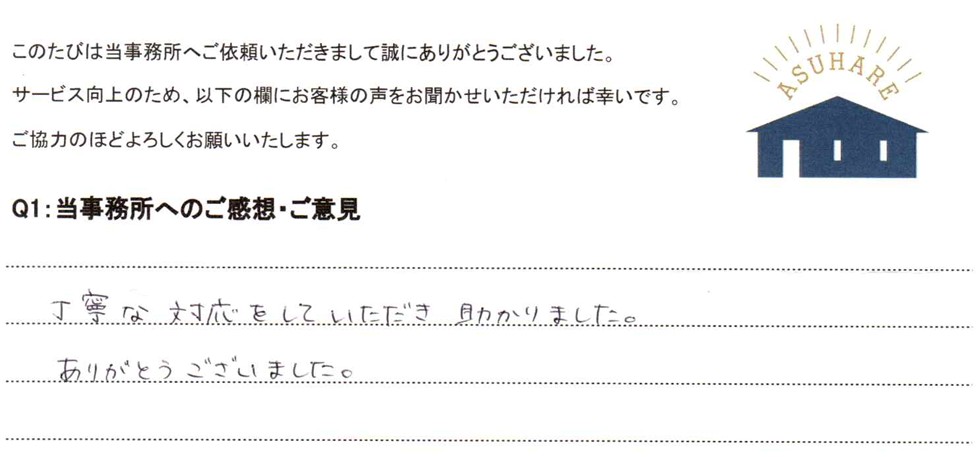 このたびは当事務所へご依頼いただきまして誠にありがとうございました。
ASUHARE
サービス向上のため、以下の欄にお客様の声をお聞かせいただければ幸いです。
ご協力のほどよろしくお願いいたします。
Q1:当事務所へのご感想・ご意見
丁寧な対応をしていただき助かりました。
ありがとうございました。